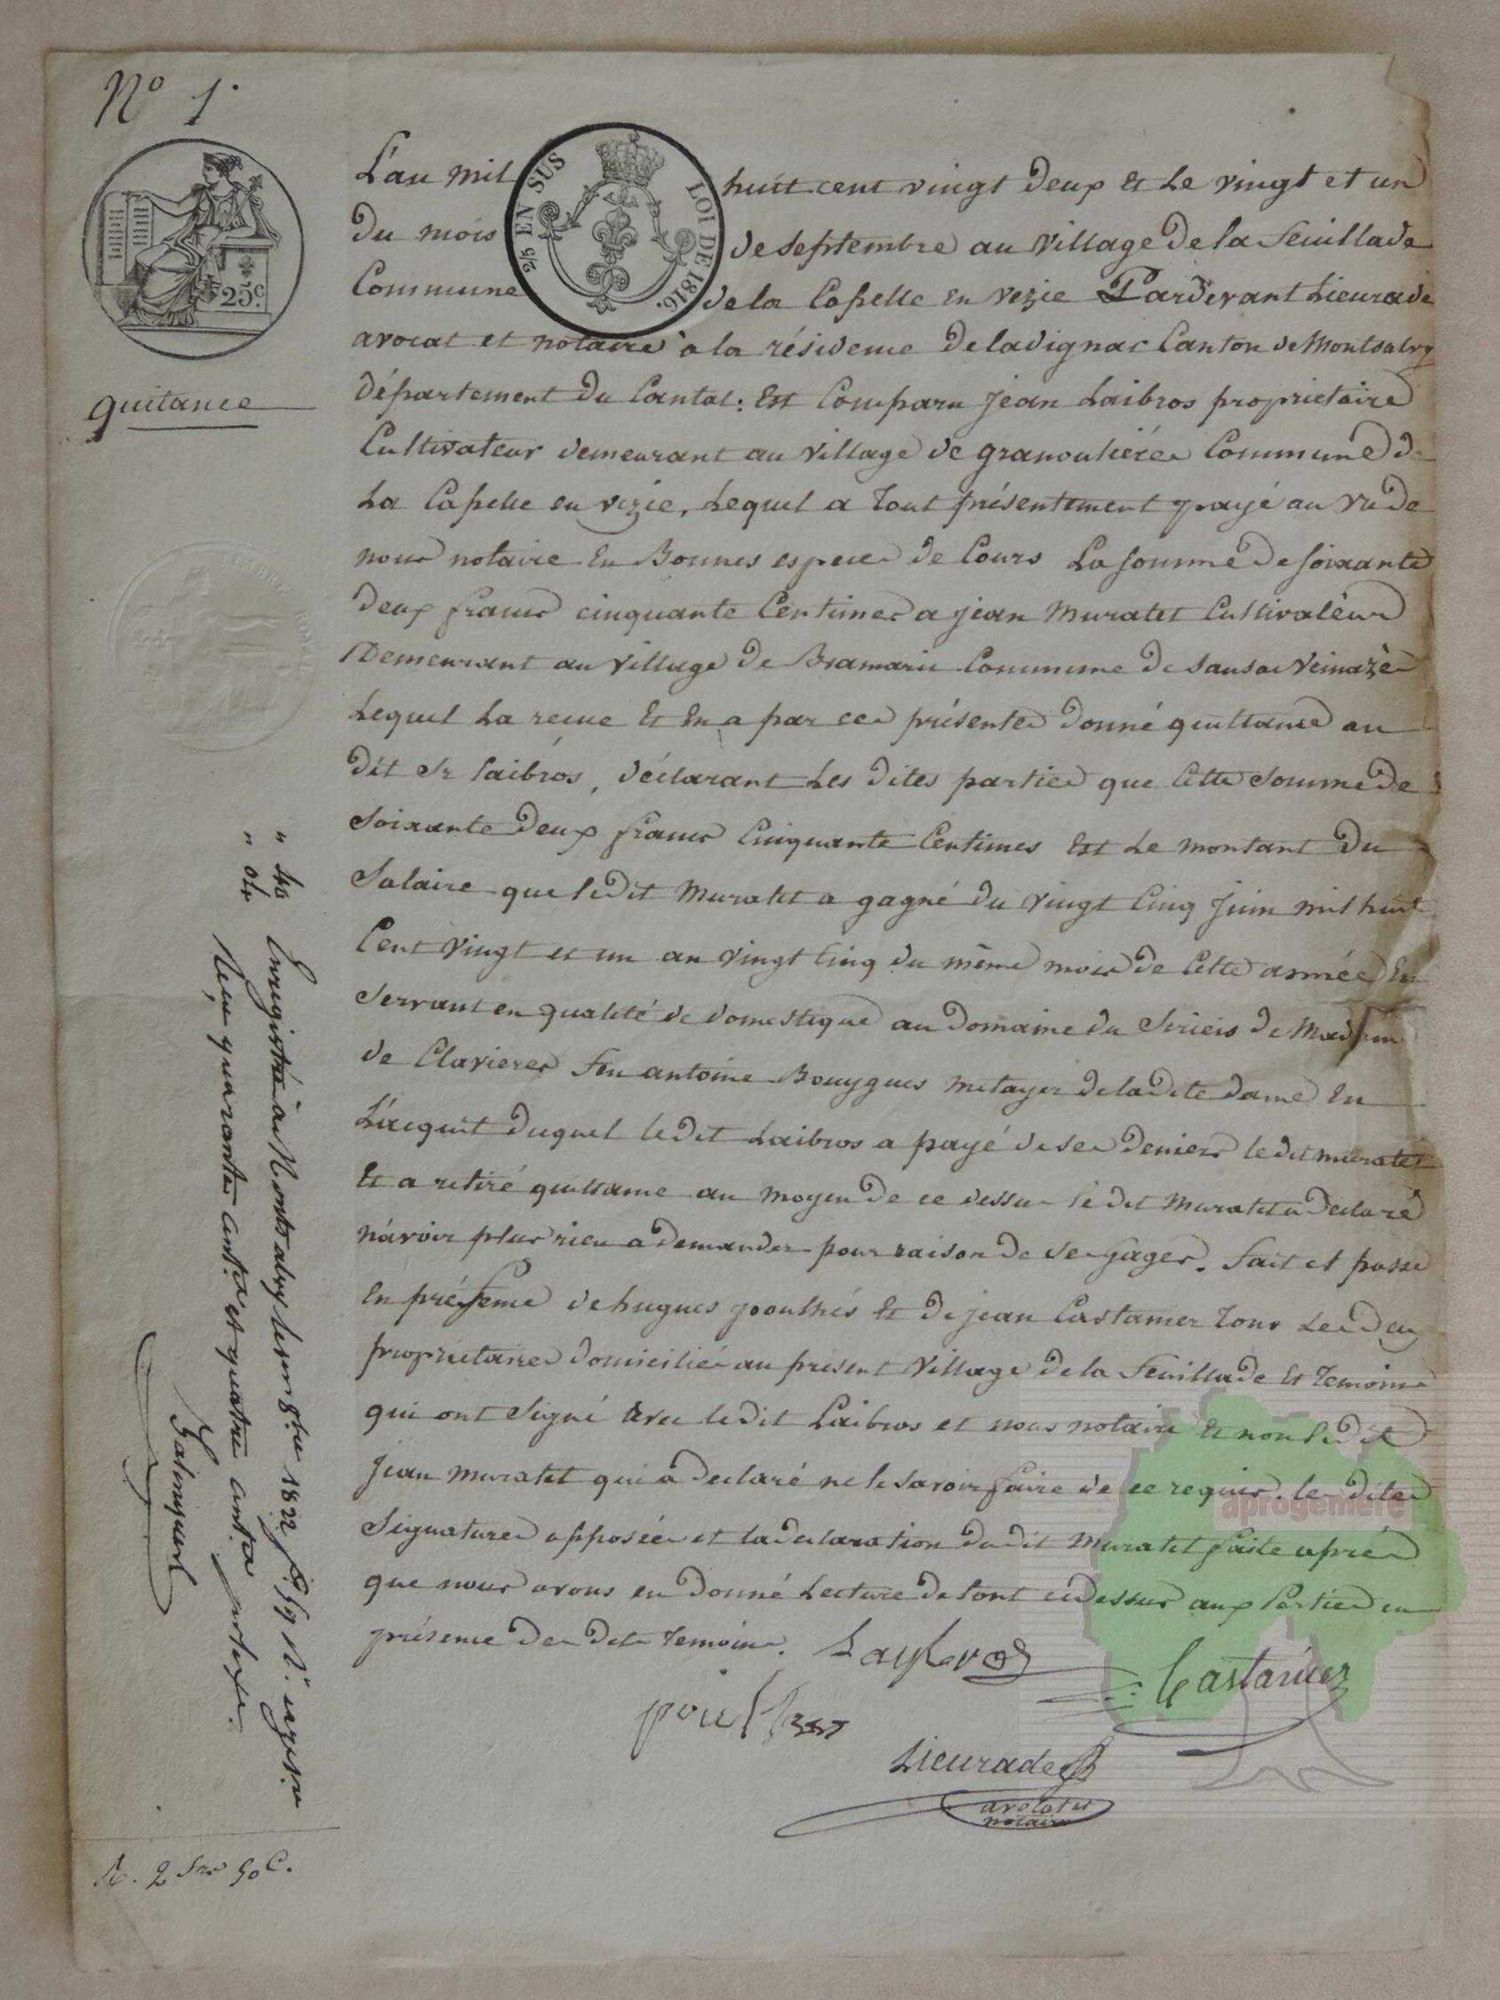 No 1.
25c
25 EN SUS
LOI DE 1816.
quitance
L'an mil huit cent vingt deux et le vingt et un
du mois de septembre au village de la feuillade
Commune de la Capelle en vezie Pardevant Lieurade
avocat et notaire à la résidence de ladignac Canton de Montsalvy
département du Cantal; Est Comparu jean Laibros proprietaire
Cultivateur demeurant au village de granoulières Commune de
La Capelle en vezie, Lequel a tout présentement payé au vu de
nous notaire En Bonnes especes de Cours La somme de soixante
deux francs cinquante Centimes a jean Muratet Cultivateur
Demeurant au village de Bramarie Commune de sansac veinazès
Lequel La recue Et En a par ces présentes donné quittance au
dit Sr Laibros, déclarant Les dites parties que Cette Somme de
soixante deux francs Cinquante Centimes Est Le montant du
Salaire que le dit Muratet a gagné du vingt Cinq juin mil huit
Cent vingt et un au vingt Cinq du même mois de Cette année En
servant en qualité de domestique au Domaine du de Madame
de Clavieres feu antoine Bouygues metayer de ladite dame En
L'acquit duquel le dit Laibros a payé de ses deniers le dit muratet
Et a retiré quittance au moyen de ce dessus le dit Muratet a declaré
n'avoir plus rien a demander pour raison de ses gages. fait et passé
En présence de hugues poulhés Et de jean Castanier tous Les deux
proprietaires domiciliés au present village de la feuillade Et temoins
qui ont signé avec le dit Laibros et nous notaire Et non le dit
jean muratet qui a declaré ne le savoir faire de ce requis. les dites
signatures apposées et la declaration du dit Muratet faite après
que nous avons eu donné Lecture de tout ci dessus aux Parties en
présence des dits temoins. Laybros
Castanier
Lieurade
avocat et
notaire
" 40
" 04
Enregistré à Montsalvy le 8bre 1822 f° 59
Reçu quarante cent. et quatre cent.
R. 2 frs 50 C.
aprogemere